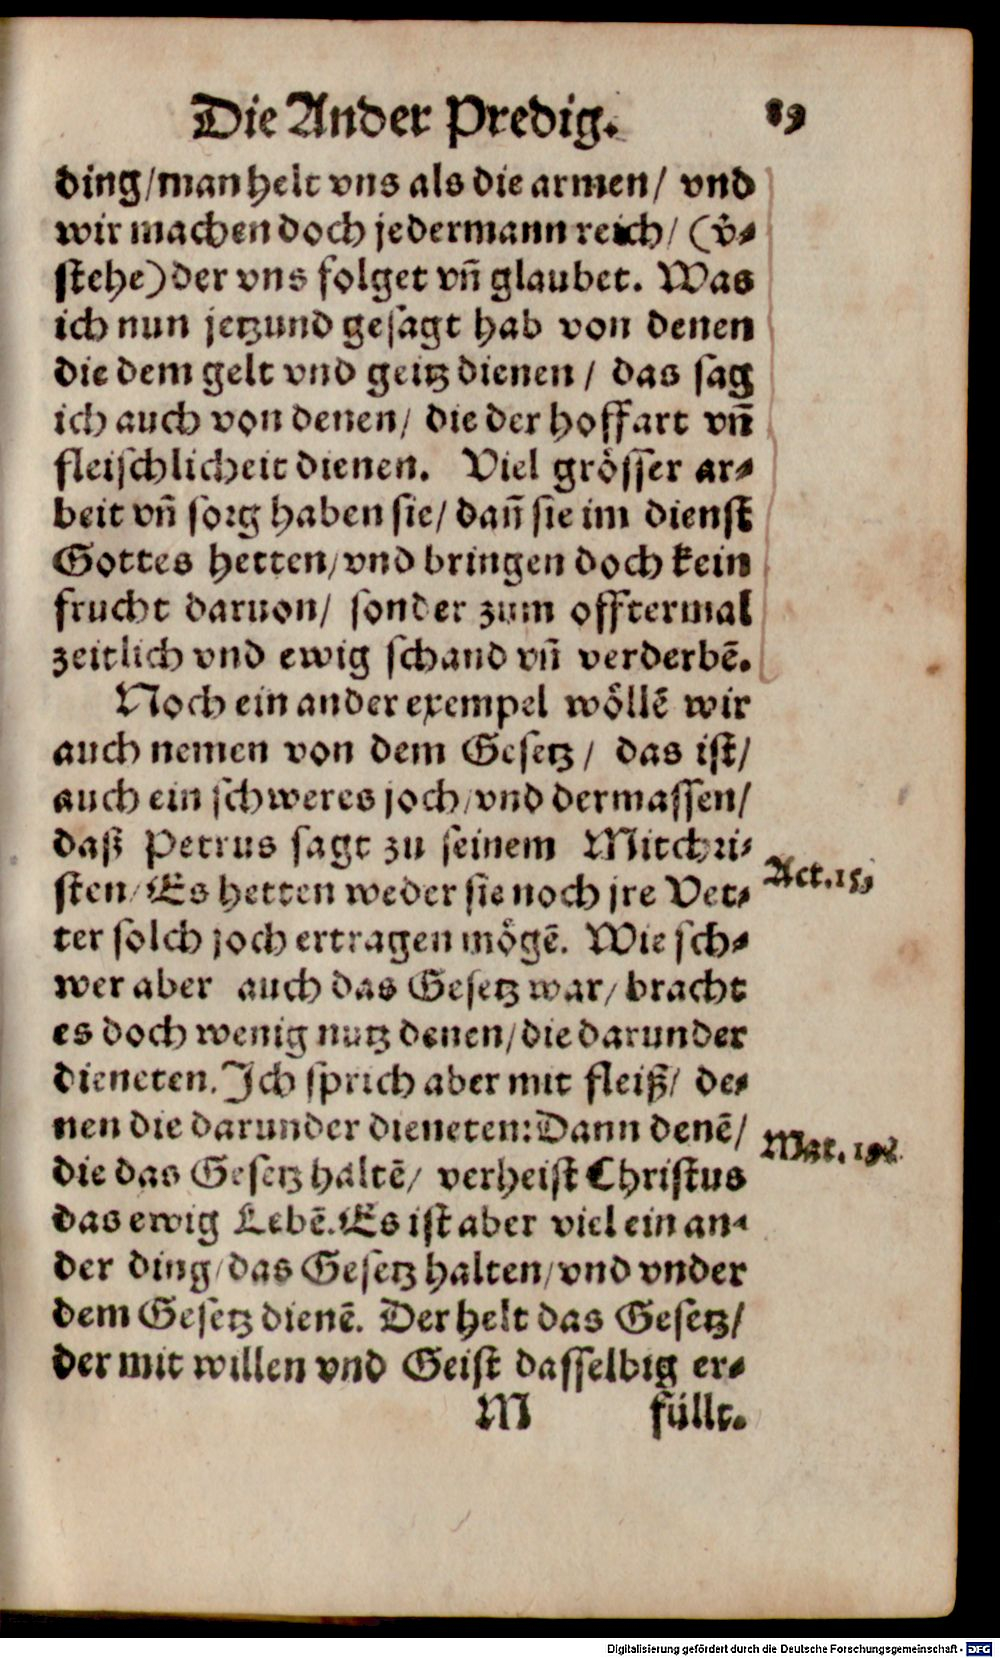 Die Ander Predig. 89
ding/man helt vns als die armen/ vnd
wir machen doch jedermann reich/ (v̄-
stehe) der vns folget vn̄ glaubet. Was
ich nun jetzund gesagt hab von denen
die dem gelt vnd geitz dienen / das sag
ich auch von denen/ die der hoffart vn̄
fleischlicheit dienen. Viel grösser ar-
beit vn̄ sorg haben sie/ dan̄ sie im dienst
Gottes hetten/vnd bringen doch kein
frucht daruon/ sonder zum offtermal
zeitlich vnd ewig schand vn̄ verderbē.
Noch ein ander exempel wöllē wir
auch nemen von dem Gesetz / das ist/
auch ein schweres joch/vnd dermassen/
daß Petrus sagt zu seinem Mitchri-
sten/Es hetten weder sie noch jre Vet-
Act.15,
ter solch joch ertragen mögē. Wie sch-
wer aber auch das Gesetz war/ bracht
es doch wenig nutz denen/die darunder
dieneten. Ich sprich aber mit fleiß/ de-
nen die darunder dieneten: Dann denē/
Mat.19.
die das Gesetz haltē/ verheist Christus
das ewig Lebē. Es ist aber viel ein an-
der ding/das Gesetz halten/vnd vnder
dem Gesetz dienē. Der helt das Gesetz/
der mit willen vnd Geist dasselbig er-
M füllt.
Digitalisierung gefördert durch die Deutsche Forschungsgemeinschaft - DFG